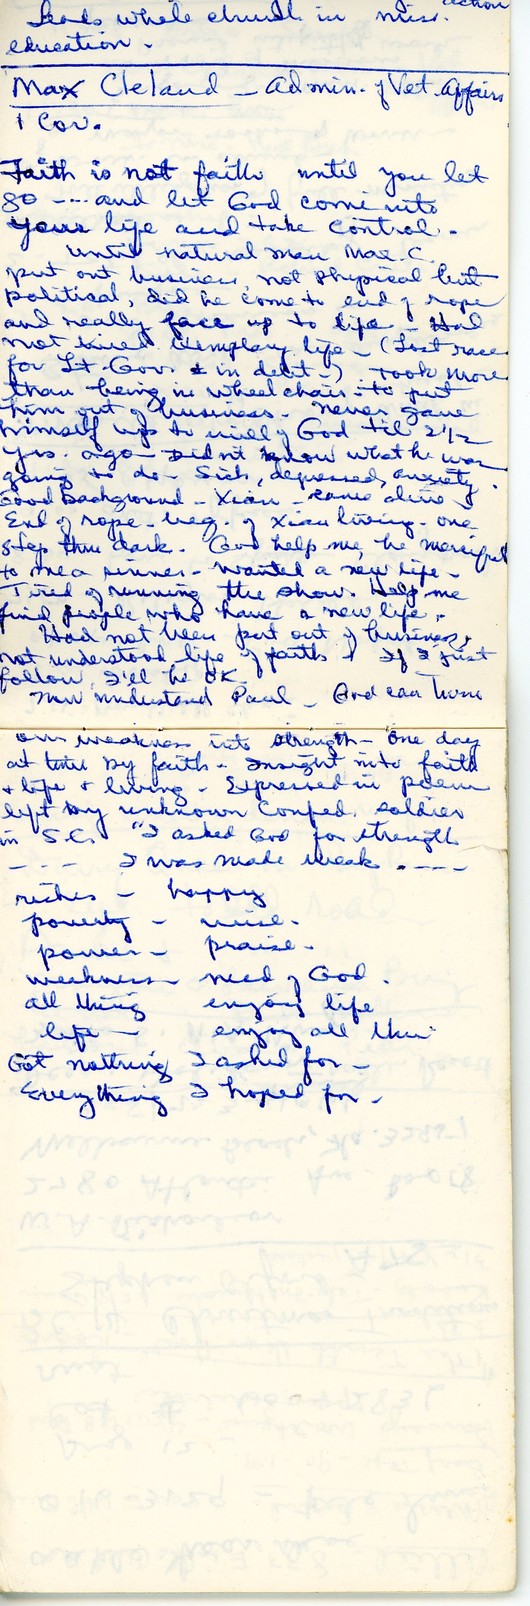 action
Leads whole church in miss.
education.
Max Cleland - Admin. of Vet. Affairs
1 Cor.
Faith is not faith until you let
go ---- and let God come into
your life and take control.
Until natural man Max C.
put out business, not physical but
political, did he come to end of rope
and really face up to life - Had
not lived exemplary life - (Lost race
for Lt. Gov. & in debt.) Took more
than being in wheel chair to put
him out of business. Never gave
himself up to will of God til 2 1/2
yrs. ago - Didn't know what he was
going to do - Sick, depressed, anxiety.
Good Background - Xian - came alive
End of rope - beg. of Xian living - one
step thru dark. God help me, be merciful
to me a sinner - Wanted a new life -
Tired of running the show. Help me
find people who have a new life.
Had not been put out of business,
not understood life of faith & If I just
follow, I'll be OK
Now understand Paul - God can turn
our weakness into strength - One day
at time by faith - Insight into faith
& life & living - Expressed in poem
left by unknown Confed. soldier
in S.C. "I asked God for strength
---- I was made weak ----
riches - happy
poverty - wise.
power - praise.
weakness need of God.
all thing enjoy life
life - enjoy all thin
Got nothing I asked for -
Everything I hoped for -